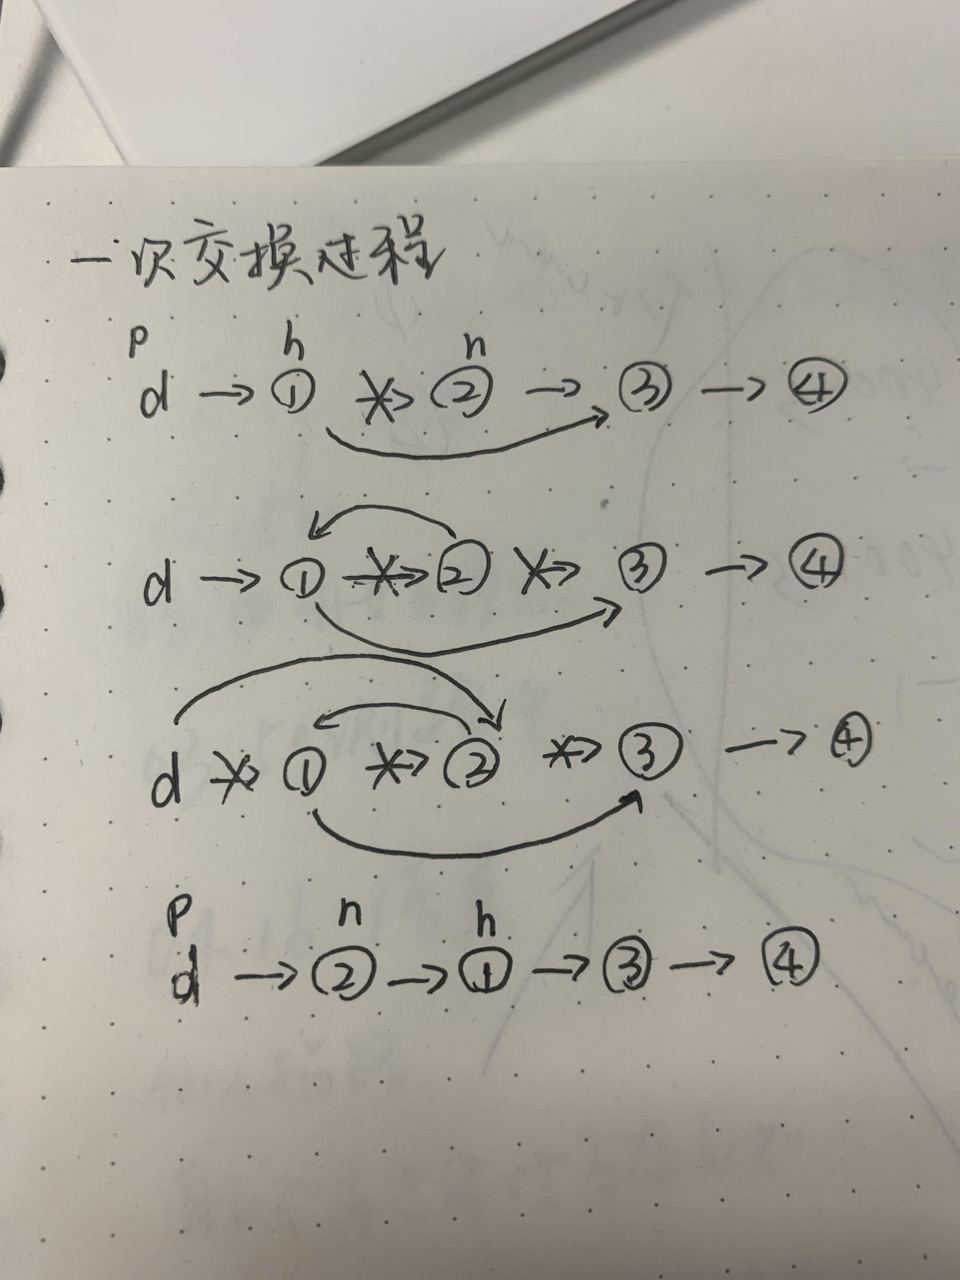 一次交换过程
p h n
d → ① → ② → ③ → ④
d → ① → ② → ③ → ④
d → ① → ② → ③ → ④
p n h
d → ② → ① → ③ → ④